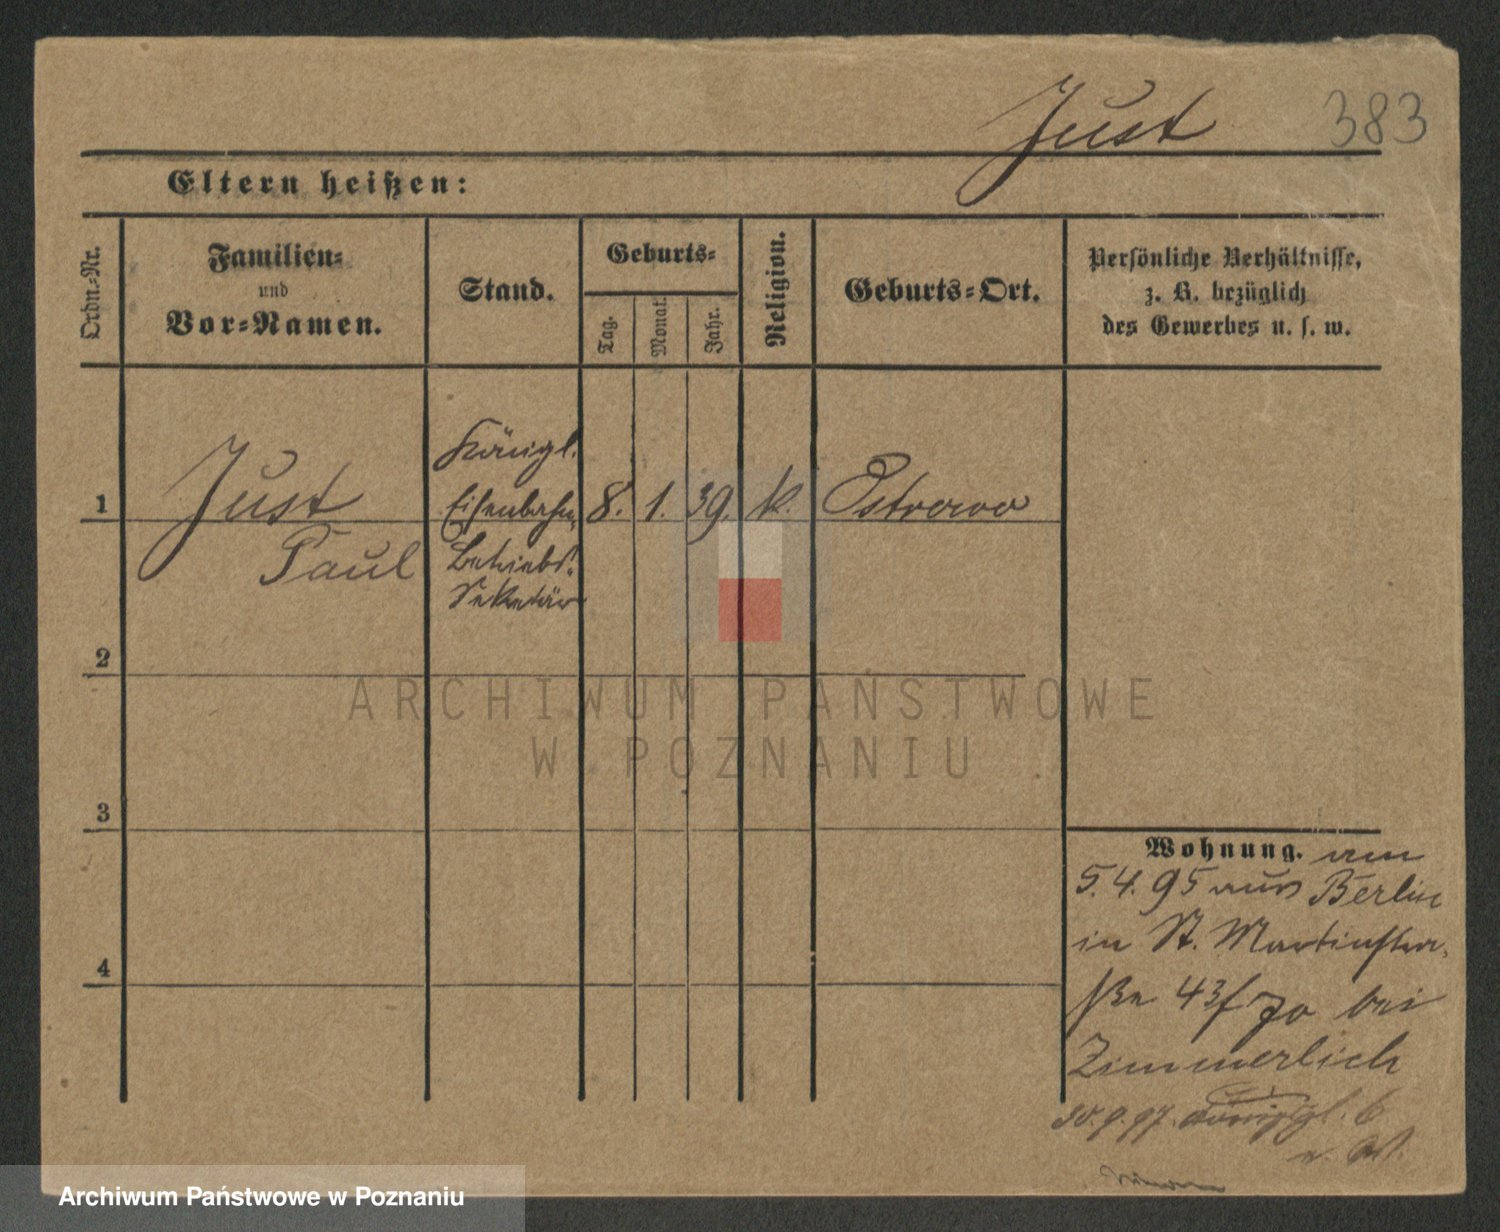 Just 383
Eltern heißen:
Ordn.-Nr.
Familien-
und
Vor-Namen.
Stand.
Geburts-
Tag.
Monat.
Jahr.
Religion.
Geburts-Ort.
Persönliche Verhältnisse,
z. B. bezüglich
des Gewerbes u. s. w.
Königl.
1 Just Eisenbahn- 8. 1. 39. k. Ostrowo
Paul Betriebs-
Sekretär
2
ARCHIWUM PAŃSTWOWE
W POZNANIU
3
Wohnung. am
5. 4. 95 aus Berlin
4 in St. Martinstra-
ße 43 bei
Zimmerlich
30.9.97.
Archiwum Państwowe w Poznaniu